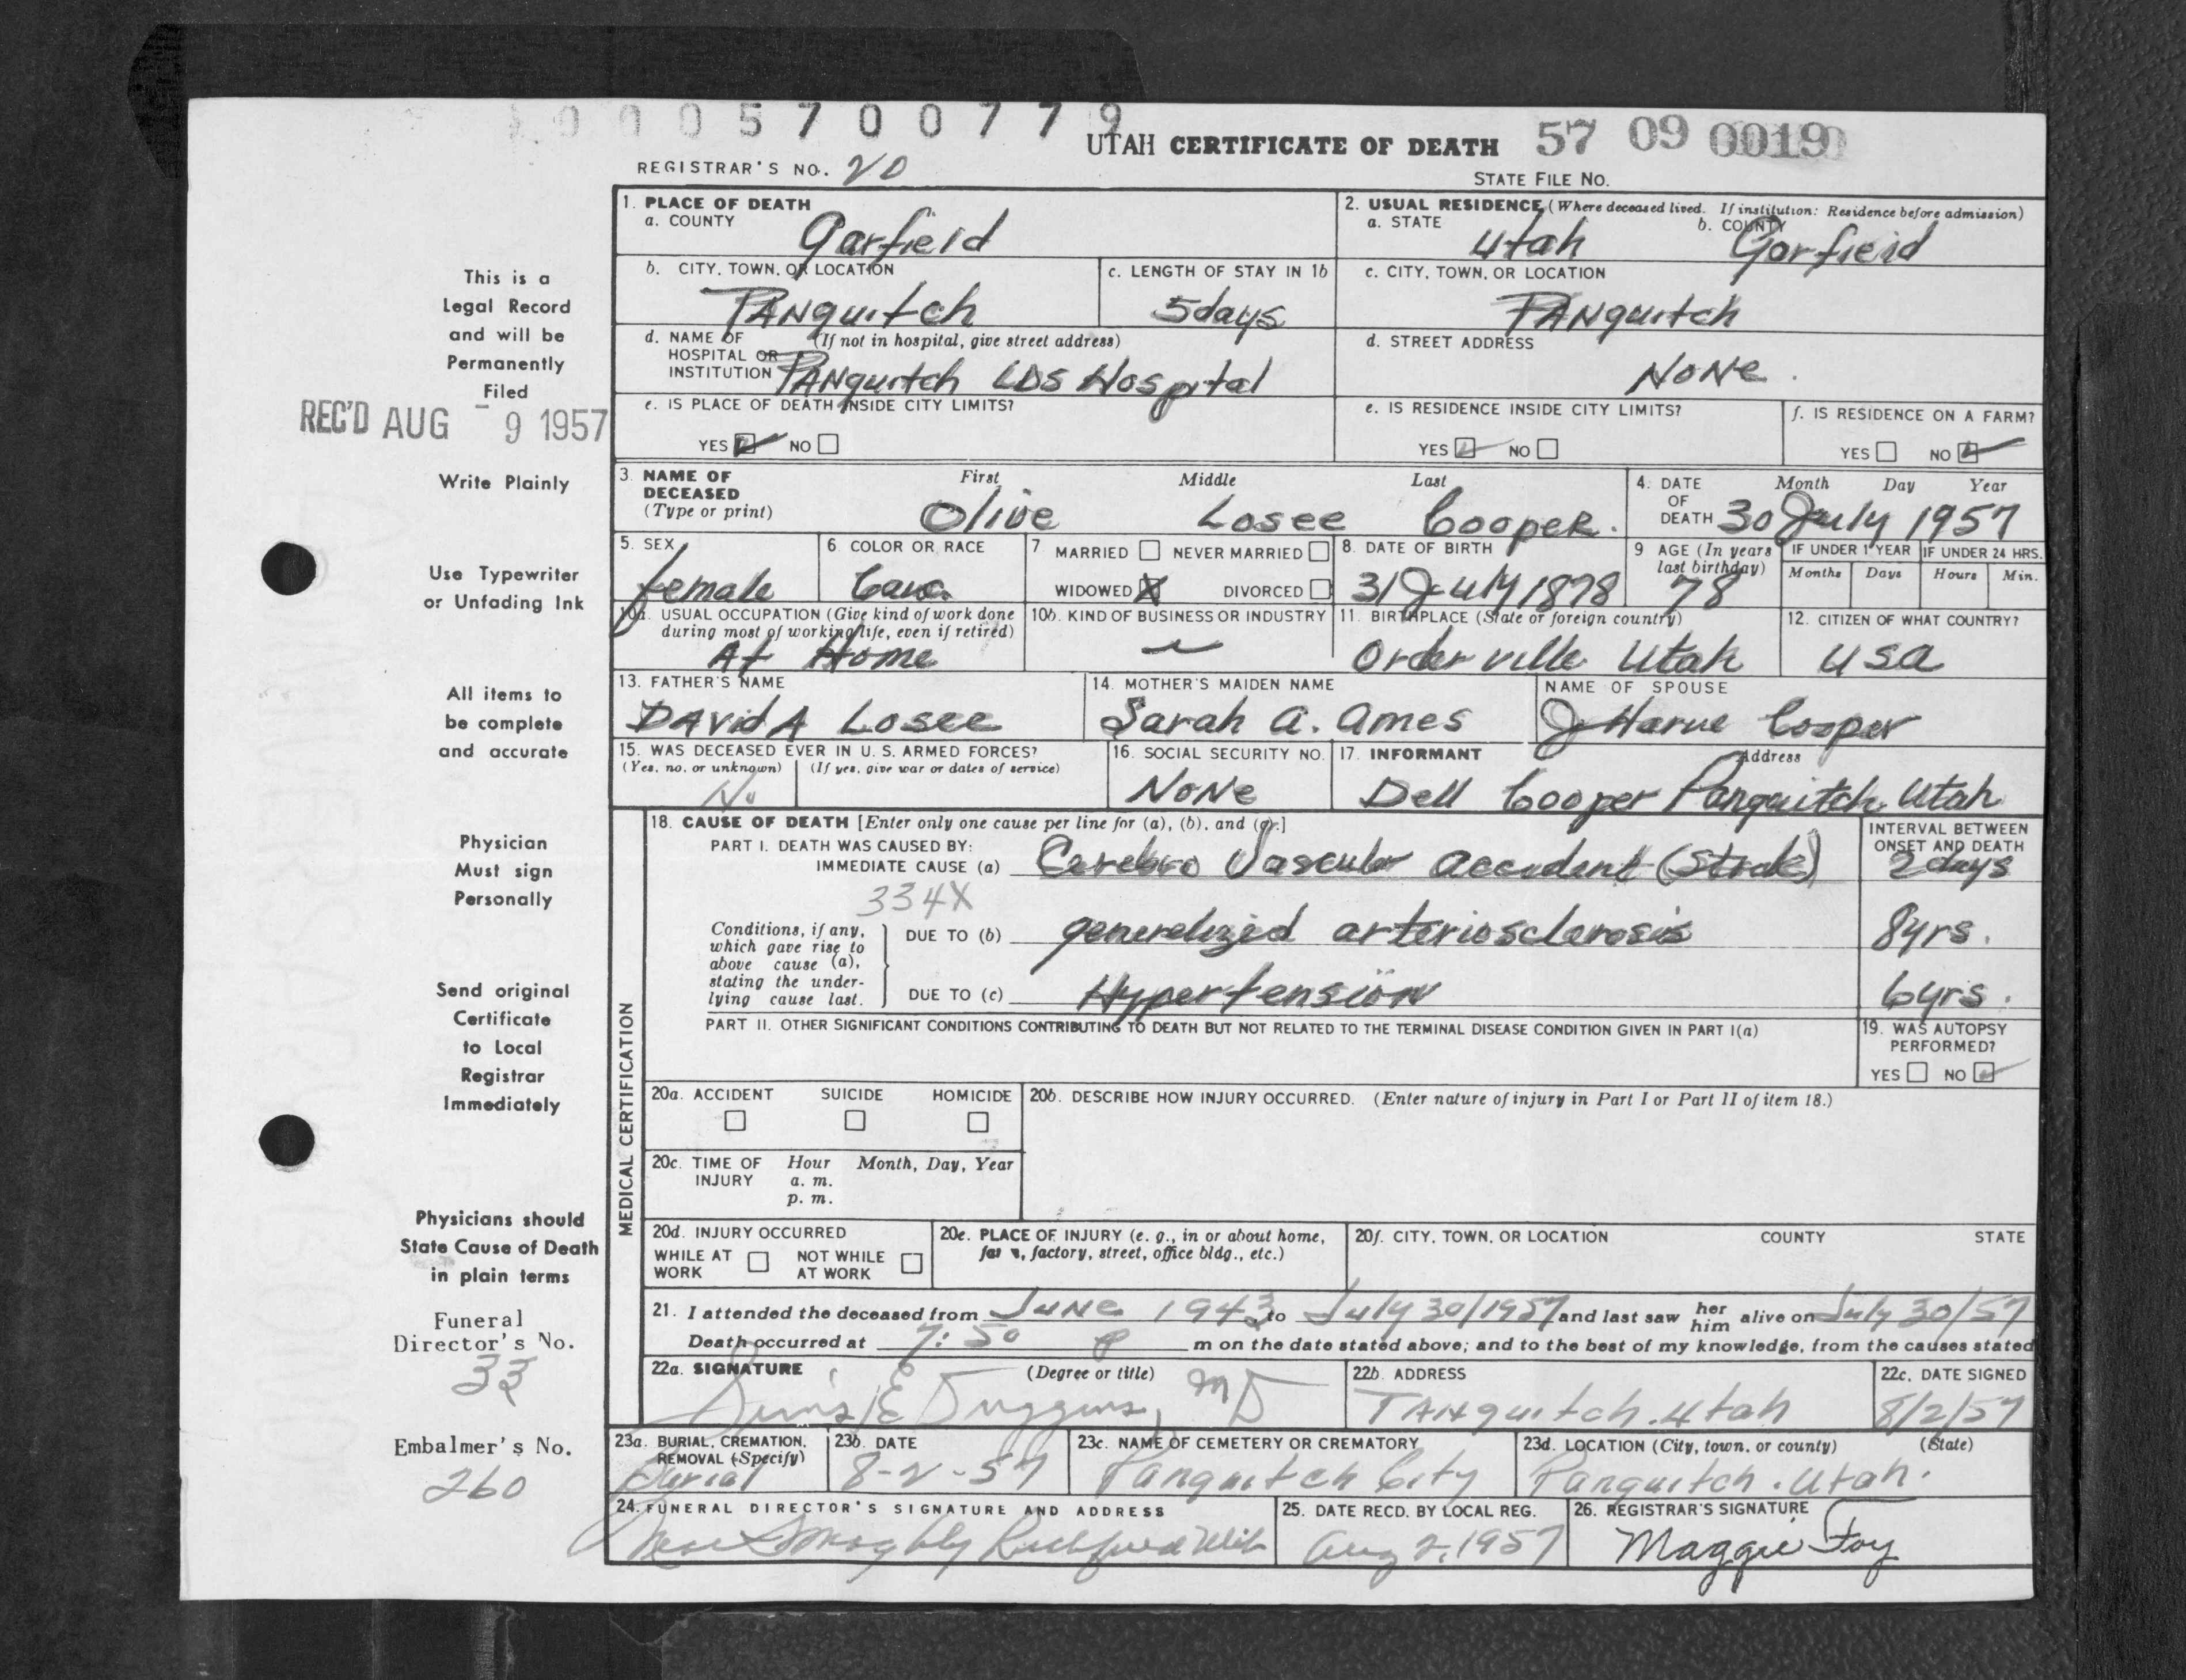 0005700779
UTAH CERTIFICATE OF DEATH 57 09 0019
REGISTRAR'S NO. 20
STATE FILE NO.
1. PLACE OF DEATH
a. COUNTY Garfield
2. USUAL RESIDENCE (Where deceased lived. If institution: Residence before admission)
a. STATE Utah b. COUNTY Garfield
b. CITY, TOWN, OR LOCATION PANquitch
c. LENGTH OF STAY IN 1b 5 days
c. CITY, TOWN, OR LOCATION PANquitch
d. NAME OF HOSPITAL OR INSTITUTION (If not in hospital, give street address) PANquitch LDS Hospital
d. STREET ADDRESS NONe.
e. IS PLACE OF DEATH INSIDE CITY LIMITS?
YES NO
e. IS RESIDENCE INSIDE CITY LIMITS?
YES NO
f. IS RESIDENCE ON A FARM?
YES NO
3. NAME OF DECEASED (Type or print)
First Middle Last
Olive Losee Cooper.
4. DATE OF DEATH Month Day Year
30 July 1957
5. SEX female
6. COLOR OR RACE Cauc.
7 MARRIED NEVER MARRIED
WIDOWED X DIVORCED
8. DATE OF BIRTH 31 July 1878
9 AGE (In years last birthday) 78
IF UNDER 1 YEAR Months Days
IF UNDER 24 HRS. Hours Min.
10a. USUAL OCCUPATION (Give kind of work done during most of working life, even if retired) At Home
10b. KIND OF BUSINESS OR INDUSTRY
11. BIRTHPLACE (State or foreign country) Orderville Utah
12. CITIZEN OF WHAT COUNTRY? USA
13. FATHER'S NAME DAvid A Losee
14. MOTHER'S MAIDEN NAME Sarah A. Ames
NAME OF SPOUSE J Harve Cooper
15. WAS DECEASED EVER IN U. S. ARMED FORCES?
(Yes, no, or unknown) (If yes, give war or dates of service)
No
16. SOCIAL SECURITY NO. NoNe
17. INFORMANT Address
Dell Cooper Panguitch Utah
18. CAUSE OF DEATH [Enter only one cause per line for (a), (b), and (c).]
PART I. DEATH WAS CAUSED BY:
IMMEDIATE CAUSE (a) Cerebro Vascular accident (Stroke)
INTERVAL BETWEEN ONSET AND DEATH
2 days
334X
Conditions, if any, which gave rise to above cause (a), stating the underlying cause last.
DUE TO (b) generalized arteriosclerosis 8yrs.
DUE TO (c) Hypertension 6yrs.
PART II. OTHER SIGNIFICANT CONDITIONS CONTRIBUTING TO DEATH BUT NOT RELATED TO THE TERMINAL DISEASE CONDITION GIVEN IN PART I(a)
19. WAS AUTOPSY PERFORMED?
YES NO
MEDICAL CERTIFICATION
20a. ACCIDENT SUICIDE HOMICIDE
20b. DESCRIBE HOW INJURY OCCURRED. (Enter nature of injury in Part I or Part II of item 18.)
20c. TIME OF INJURY Hour Month, Day, Year
a. m.
p. m.
20d. INJURY OCCURRED
WHILE AT WORK NOT WHILE AT WORK
20e. PLACE OF INJURY (e. g., in or about home, factory, street, office bldg., etc.)
20f. CITY, TOWN, OR LOCATION COUNTY STATE
21. I attended the deceased from June 1943 to July 30/1957 and last saw her him alive on July 30/57
Death occurred at 7:50 P m on the date stated above; and to the best of my knowledge, from the causes stated
22a. SIGNATURE (Degree or title)
Sims E Duggins, MD
22b. ADDRESS PANguitch. Utah
22c. DATE SIGNED 8/2/57
23a. BURIAL, CREMATION, REMOVAL (Specify) Burial
23b. DATE 8-2-57
23c. NAME OF CEMETERY OR CREMATORY Panguitch City
23d. LOCATION (City, town, or county) (State)
Panguitch. Utah.
24. FUNERAL DIRECTOR'S SIGNATURE AND ADDRESS
25. DATE RECD. BY LOCAL REG. Aug 2, 1957
26. REGISTRAR'S SIGNATURE Maggie Foy
This is a
Legal Record
and will be
Permanently
Filed
REC'D AUG - 9 1957
Write Plainly
Use Typewriter
or Unfading Ink
All items to
be complete
and accurate
Physician
Must sign
Personally
Send original
Certificate
to Local
Registrar
Immediately
Physicians should
State Cause of Death
in plain terms
Funeral
Director's No.
33
Embalmer's No.
260